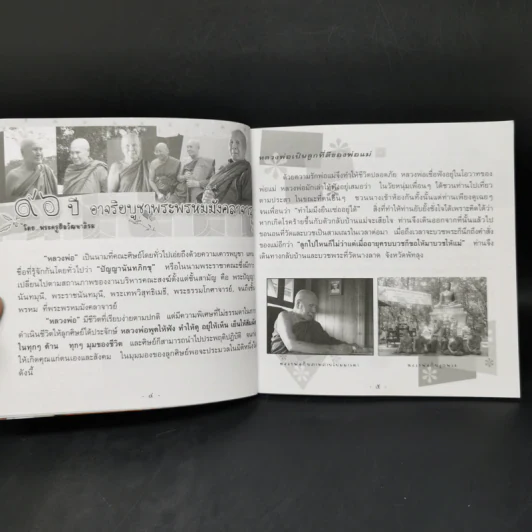 ๙๖ ปี อาจริยบูชาพระพรหมมังคลาจารย์
"หลวงพ่อ" เป็นนามที่คณะศิษย์โดยทั่วไปเอ่ยถึงด้วยความเคารพบูชา
ชื่อที่รู้จักกันโดยทั่วไปว่า "ปัญญานันทภิกขุ" หรือในนามพระราชาคณะซึ่งมีการ
เปลี่ยนไปตามสถานภาพของงานบริหารคณะสงฆ์ตั้งแต่ชั้นสามัญ คือ พระปัญญา
นันทมุนี, พระราชนันทมุนี, พระเทพวิสุทธิเมธี, พระธรรมโกศาจารย์, จนถึงชั้น
พรหม ที่พระพรหมมังคลาจารย์
"หลวงพ่อ" มีชีวิตที่เรียบง่ายตามปกติ แต่มีความพิเศษที่ไม่ธรรมดาในการ
ดำเนินชีวิตให้ลูกศิษย์ได้ประจักษ์ หลวงพ่อพูดให้ฟัง ทำให้ดู อยู่ให้เห็น เย็นให้สัมผัส
ในทุกๆ ด้าน ทุกๆ มุมของชีวิต และศิษย์ก็สามารถนำไปประพฤติปฏิบัติ
ให้เกิดคุณแก่ตนเองและสังคม ในมุมมองของลูกศิษย์พอจะประมวลในมิติหนึ่งได้
ดังนี้
- ๔ -
หลวงพ่อเป็นลูกที่ดีของพ่อแม่
ด้วยความรักพ่อแม่จึงทำให้ชีวิตปลอดภัย หลวงพ่อเชื่อฟังอยู่ในโอวาทของ
พ่อแม่ หลวงพ่อมักเล่าให้ฟังอยู่เสมอว่า ในวัยหนุ่มเพื่อนๆ ได้ชวนท่านไปเที่ยว
จนเพื่อนว่า "ทำไมมึงยืนเซ่ออยู่ได้" สิ่งที่ทำให้ท่านยับยั้งชั่งใจได้เพราะคิดได้ว่า
หากเกิดโรคร้ายขึ้นตัวกลับบ้านแม่จะเสียใจ ท่านจึงเดินออกจากที่นั้นแล้วไป
ของแม่ก็ว่า "ลูกไปไหนก็ไม่ว่าแต่เมื่ออายุครบบวชก็ขอให้มาบวชให้แม่" ท่านจึง
เดินทางกลับบ้านและบวชพระที่วัดนางลาด จังหวัดพัทลุง
- ๕ -